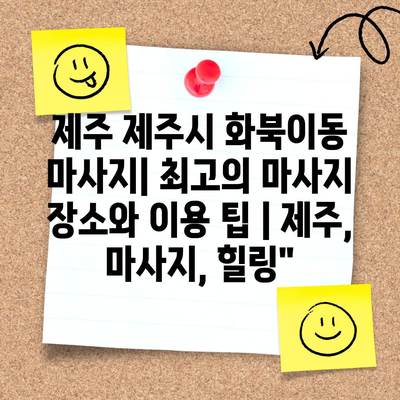 제주 제주시 화북이동
마사지| 최고의 마사지
장소와 이용 팁 | 제주,
마사지, 힐링"